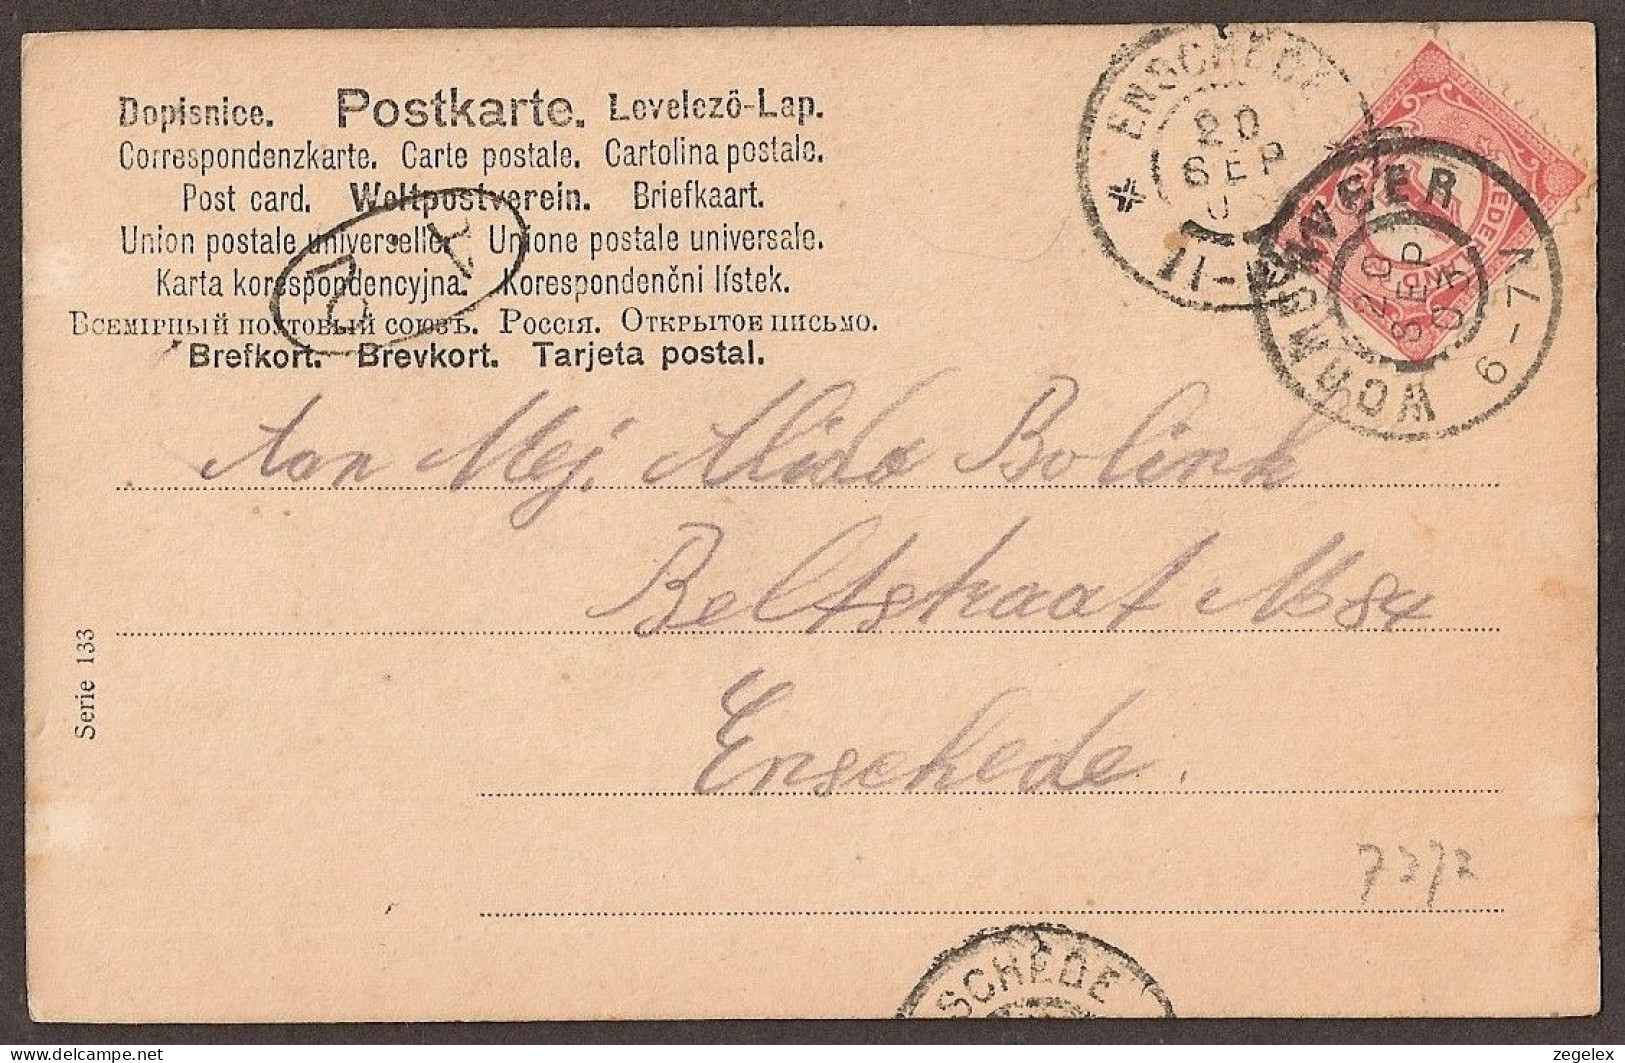 Dopisnice. Postkarte. Levelezö-Lap.
Correspondenzkarte. Carte postale. Cartolina postale.
Post card. Weltpostverein. Briefkaart.
Union postale universelle. Unione postale universale.
Karta korespondencyjna. Korespondenčni lístek.
Всемірный почтовый союзъ. Россія. Открытое письмо.
Brefkort. Brevkort. Tarjeta postal.
ENSCHEDE
20
SEP
WORMERVEER
20
SEP
6-7V
Aan Mej. Alida Bolink
Beltstraat
Enschede.
Serie 133
SCHEDE
delcampe.net
zegelex